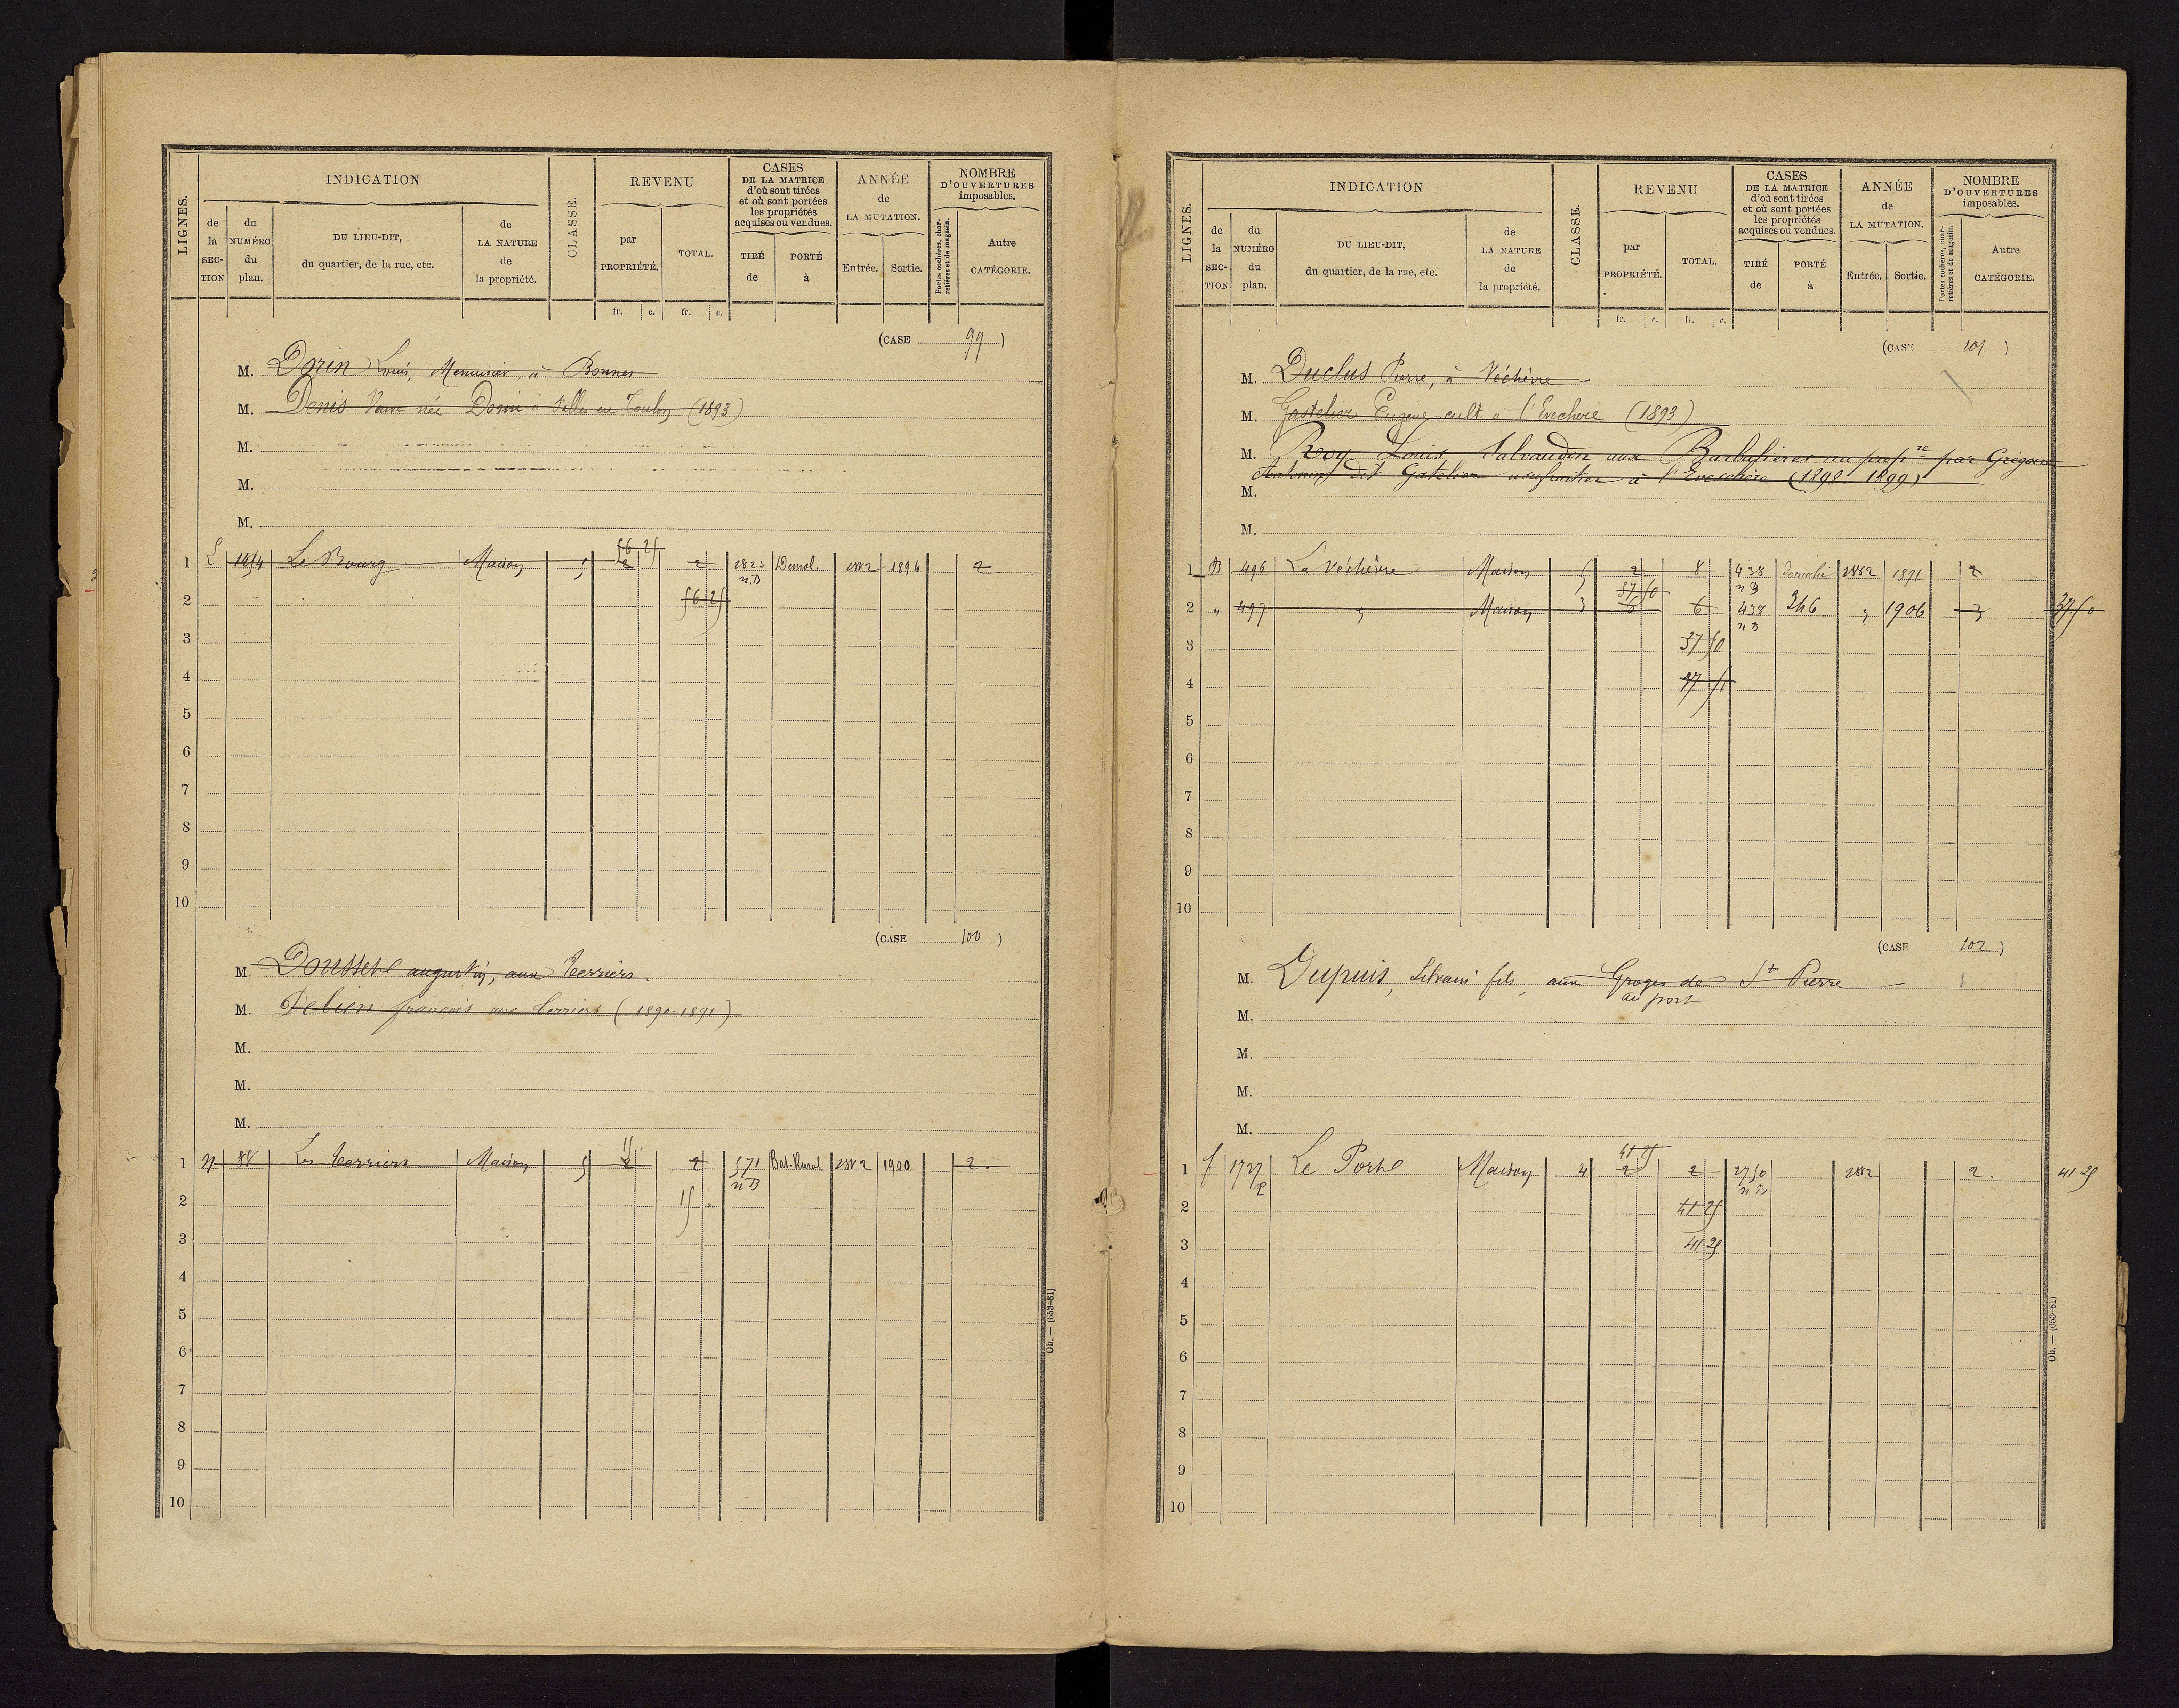 LIGNES.
INDICATION
de la SECTION
du NUMÉRO du plan.
DU LIEU-DIT, du quartier, de la rue, etc.
de LA NATURE de la propriété.
CLASSE.
REVENU
par PROPRIÉTÉ.
TOTAL.
CASES DE LA MATRICE d'où sont tirées et où sont portées les propriétés acquises ou vendues.
TIRÉ de
PORTÉ à
ANNÉE de LA MUTATION.
Entrée.
Sortie.
NOMBRE D'OUVERTURES imposables.
Portes cochères, charretières et de magasin.
Autre CATÉGORIE.
fr. c. fr. c.
(CASE 99)
M. Dorin Louis, Menuisier, à Bonnes
M. Denis Veuve née Dorin à (1893)
M.
M.
M.
56 25
1 L 1454 Le Bourg Maison 5 2 2 1823 Démol. 1882 1894 2
n.B
2 56 25
3
4
5
6
7
8
9
10
(CASE 100)
M. Dousset augustin, aux Terriers
M. Debien françois aux Terriers (1890-1891)
M.
M.
M.
1 N 88 Les Terriers Maison 5 2 2 571 Bat. Rural 1882 1900 2.
n B
2 15
3
4
5
6
7
8
9
10
Ob. — (653-81)
LIGNES.
INDICATION
de la SECTION
du NUMÉRO du plan.
DU LIEU-DIT, du quartier, de la rue, etc.
de LA NATURE de la propriété.
CLASSE.
REVENU
par PROPRIÉTÉ.
TOTAL.
CASES DE LA MATRICE d'où sont tirées et où sont portées les propriétés acquises ou vendues.
TIRÉ de
PORTÉ à
ANNÉE de LA MUTATION.
Entrée.
Sortie.
NOMBRE D'OUVERTURES imposables.
Portes cochères, charretières et de magasin.
Autre CATÉGORIE.
fr. c. fr. c.
(CASE 101)
M. Duclus Pierre, à Véchèvre
M. Gastelier Eugène cult. à l'Evechere (1893)
M. Roy Louis Salvaudon aux Barbalières nu propre par Grégoire
Antonin dit Gatelier usufruitier à l'Eveschère (1898-1899)
M.
M.
1 B 496 La Véchèvre Maison 5 2 8 438 démolie 1882 1891 2
n B
37 50
2 " 497 " Maison 3 6 6 438 246 " 1906 3 37 50
n B
3 37 50
4 37 50
5
6
7
8
9
10
(CASE 102)
M. Dupuis, Silvain fils, aux Groges de St Pierre
au port
M.
M.
M.
M.
41 25
1 f 1727 p Le Porte Maison 4 2 2 2750 1882 2. 41 25
n B
2 41 25
3 41 25
4
5
6
7
8
9
10
Ob. — (653-81)